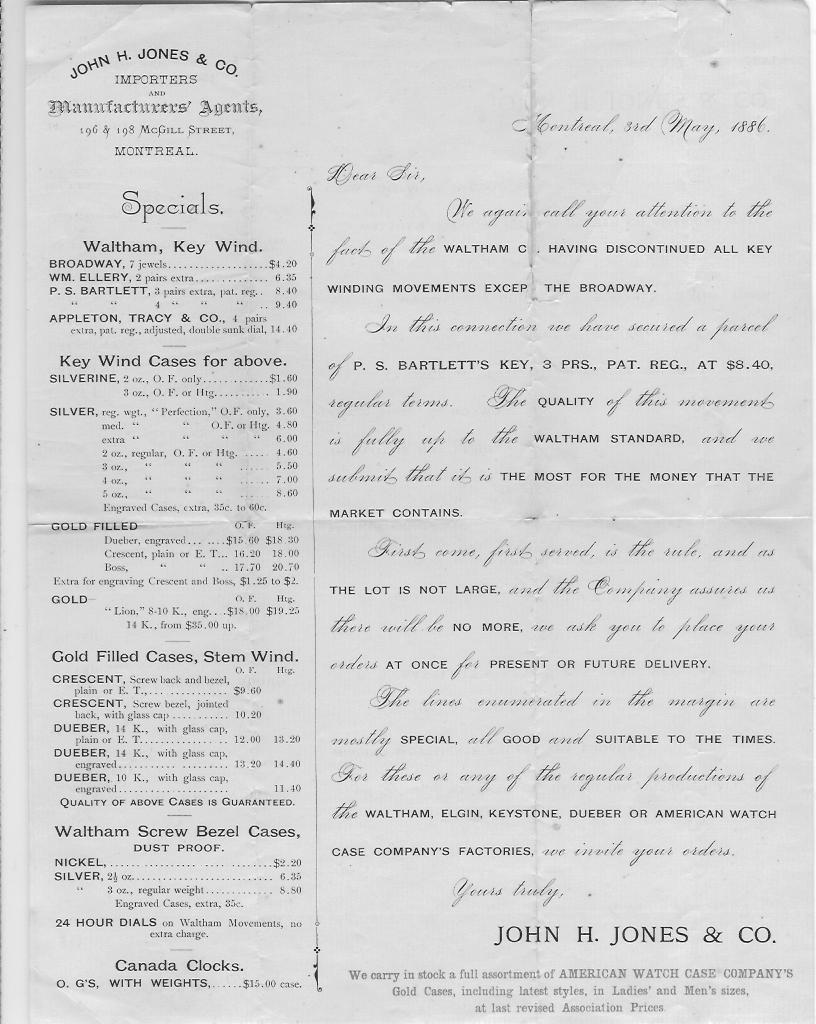 JOHN H. JONES & CO.
IMPORTERS
AND
Manufacturers' Agents,
196 & 198 McGILL STREET,
MONTREAL.
Specials.
Waltham, Key Wind.
BROADWAY, 7 jewels...................$4.20
WM. ELLERY, 2 pairs extra.............. 6.35
P. S. BARTLETT, 3 pairs extra, pat. reg.. 8.40
" " 4 " " " .. 9.40
APPLETON, TRACY & CO., 4 pairs
extra, pat. reg., adjusted, double sunk dial, 14.40
Key Wind Cases for above.
SILVERINE, 2 oz., O. F. only............$1.60
3 oz., O. F. or Htg.......... 1.90
SILVER, reg. wgt., "Perfection," O.F. only, 3.60
med. " " O.F. or Htg. 4.80
extra " " " " 6.00
2 oz., regular, O. F. or Htg. ..... 4.60
3 oz., " " " ...... 5.50
4 oz., " " " ...... 7.00
5 oz., " " " ...... 8.60
Engraved Cases, extra, 35c. to 60c.
GOLD FILLED O. F. Htg.
Dueber, engraved... ....$15.60 $18.30
Crescent, plain or E. T... 16.20 18.00
Boss, " " .. 17.70 20.70
Extra for engraving Crescent and Boss, $1.25 to $2.
GOLD— O. F. Htg.
"Lion," 8-10 K., eng...$18.00 $19.25
14 K., from $35.00 up.
Gold Filled Cases, Stem Wind.
O. F. Htg.
CRESCENT, Screw back and bezel,
plain or E. T.,............... $9.60
CRESCENT, Screw bezel, jointed
back, with glass cap ........... 10.20
DUEBER, 14 K., with glass cap,
plain or E. T................. 12.00 13.20
DUEBER, 14 K., with glass cap,
engraved..................... 13.20 14.40
DUEBER, 10 K., with glass cap,
engraved..................... 11.40
QUALITY OF ABOVE CASES IS GUARANTEED.
Waltham Screw Bezel Cases,
DUST PROOF.
NICKEL, ..............................$2.20
SILVER, 2½ oz.......................... 6.35
" 3 oz., regular weight............. 8.80
Engraved Cases, extra, 35c.
24 HOUR DIALS on Waltham Movements, no
extra charge.
Canada Clocks.
O. G'S, WITH WEIGHTS,......$15.00 case.
Montreal, 3rd May, 1886.
Dear Sir,
We again call your attention to the
fact of the WALTHAM C . HAVING DISCONTINUED ALL KEY
WINDING MOVEMENTS EXCEP THE BROADWAY.
In this connection we have secured a parcel
of P. S. BARTLETT'S KEY, 3 PRS., PAT. REG., AT $8.40,
regular terms. The QUALITY of this movement
is fully up to the WALTHAM STANDARD, and we
submit that it is THE MOST FOR THE MONEY THAT THE
MARKET CONTAINS.
First come, first served, is the rule, and as
THE LOT IS NOT LARGE, and the Company assures us
there will be NO MORE, we ask you to place your
orders AT ONCE for PRESENT OR FUTURE DELIVERY.
The lines enumerated in the margin are
mostly SPECIAL, all GOOD and SUITABLE TO THE TIMES.
For these or any of the regular productions of
the WALTHAM, ELGIN, KEYSTONE, DUEBER OR AMERICAN WATCH
CASE COMPANY'S FACTORIES, we invite your orders.
Yours truly,
JOHN H. JONES & CO.
We carry in stock a full assortment of AMERICAN WATCH CASE COMPANY'S
Gold Cases, including latest styles, in Ladies' and Men's sizes,
at last revised Association Prices.